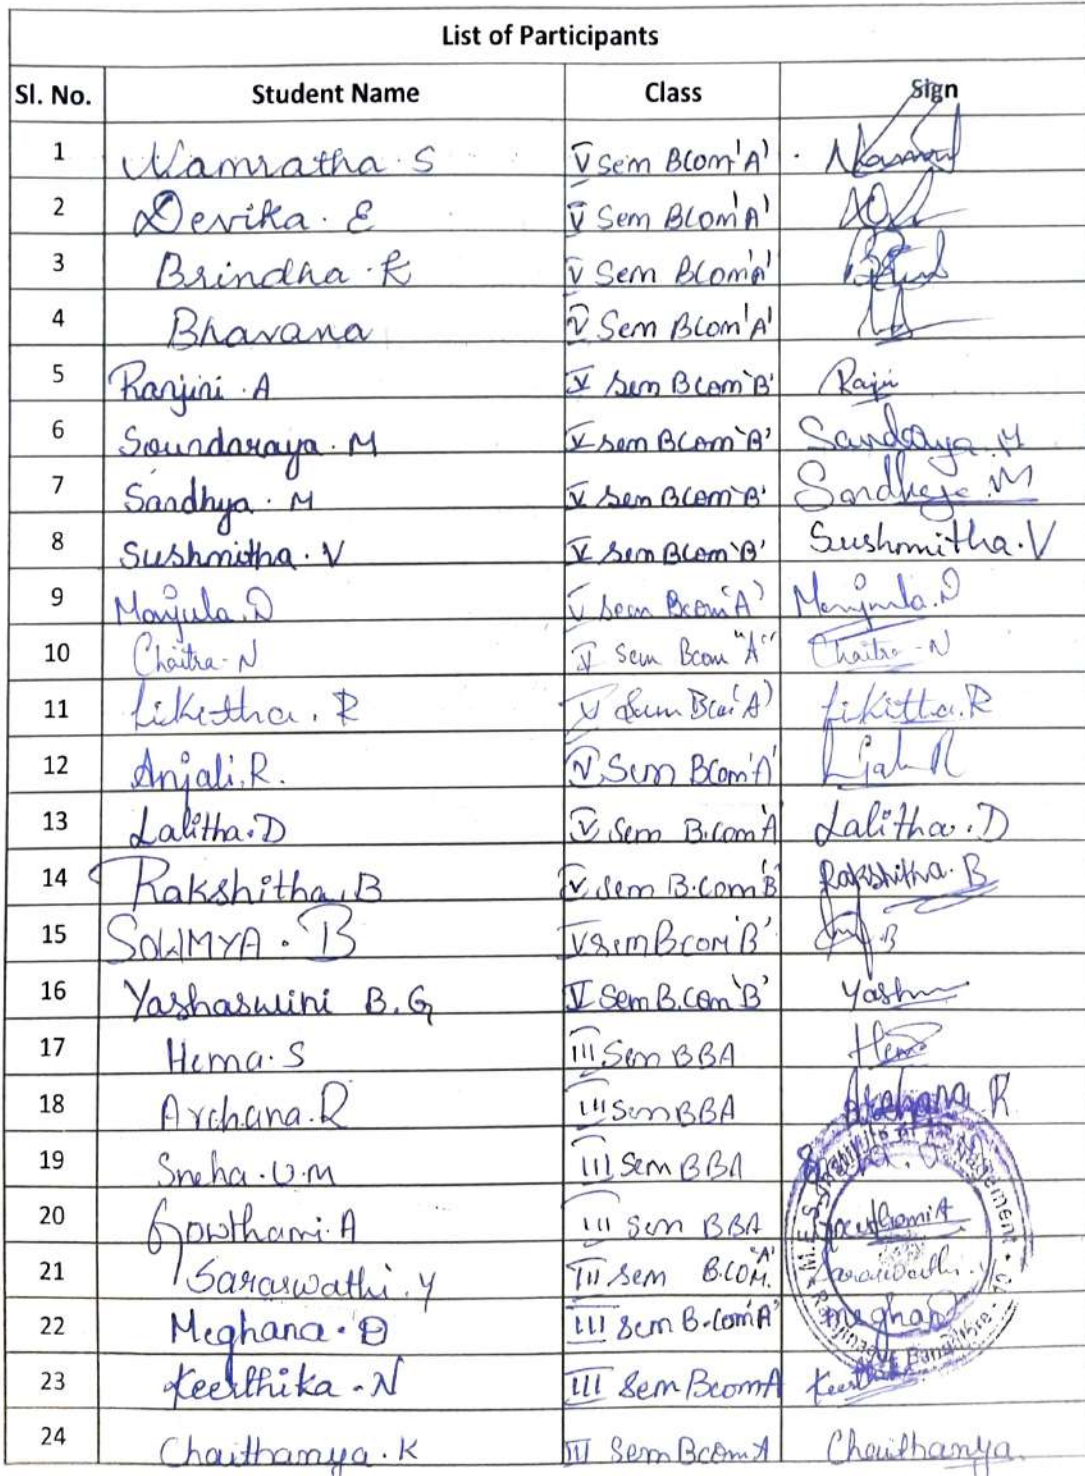 List of Participants
Sl. No. Student Name Class Sign
1 Namratha. S V Sem BCom 'A'
2 Devika. E V Sem BCom 'A'
3 Brindha. K V Sem BCom 'A'
4 Bhavana V Sem BCom 'A'
5 Ranjini. A V Sem BCom 'B'
6 Soundaraya. M V Sem BCom 'B'
7 Sandhya. M V Sem BCom 'B' Sandhya. M
8 Sushmitha. V V Sem BCom 'B' Sushmitha. V
9 Manjula. D V Sem Bcom 'A' Manjula. D
10 Chaitra - N V Sem Bcom "A" Chaitra - N
11 Likitha. R V Sem Bcom 'A' Likitha. R
12 Anjali. R. V Sem BCom 'A'
13 Lalitha. D V Sem B.Com 'A' Lalitha. D
14 Rakshitha. B V Sem B.Com 'B' Rakshitha. B
15 SOWMYA. B V Sem Bcom 'B'
16 Yashaswini B.G V Sem B.Com 'B' Yashu
17 Hema. S III Sem BBA Hema
18 Archana. R III Sem BBA Archana. R
19 Sneha. U. M III Sem BBA
20 Gowthami. A III Sem BBA Gowthami A
21 Saraswathi. Y III Sem B.COM. "A" Saraswathi. Y
22 Meghana. D III Sem B.Com 'A' Meghana
23 Keerthika - N III Sem Bcom A
24 Chaithanya. K III Sem Bcom A Chaithanya.
M.E.S. Institute of Management
Rajajinagar Bangalore - 10